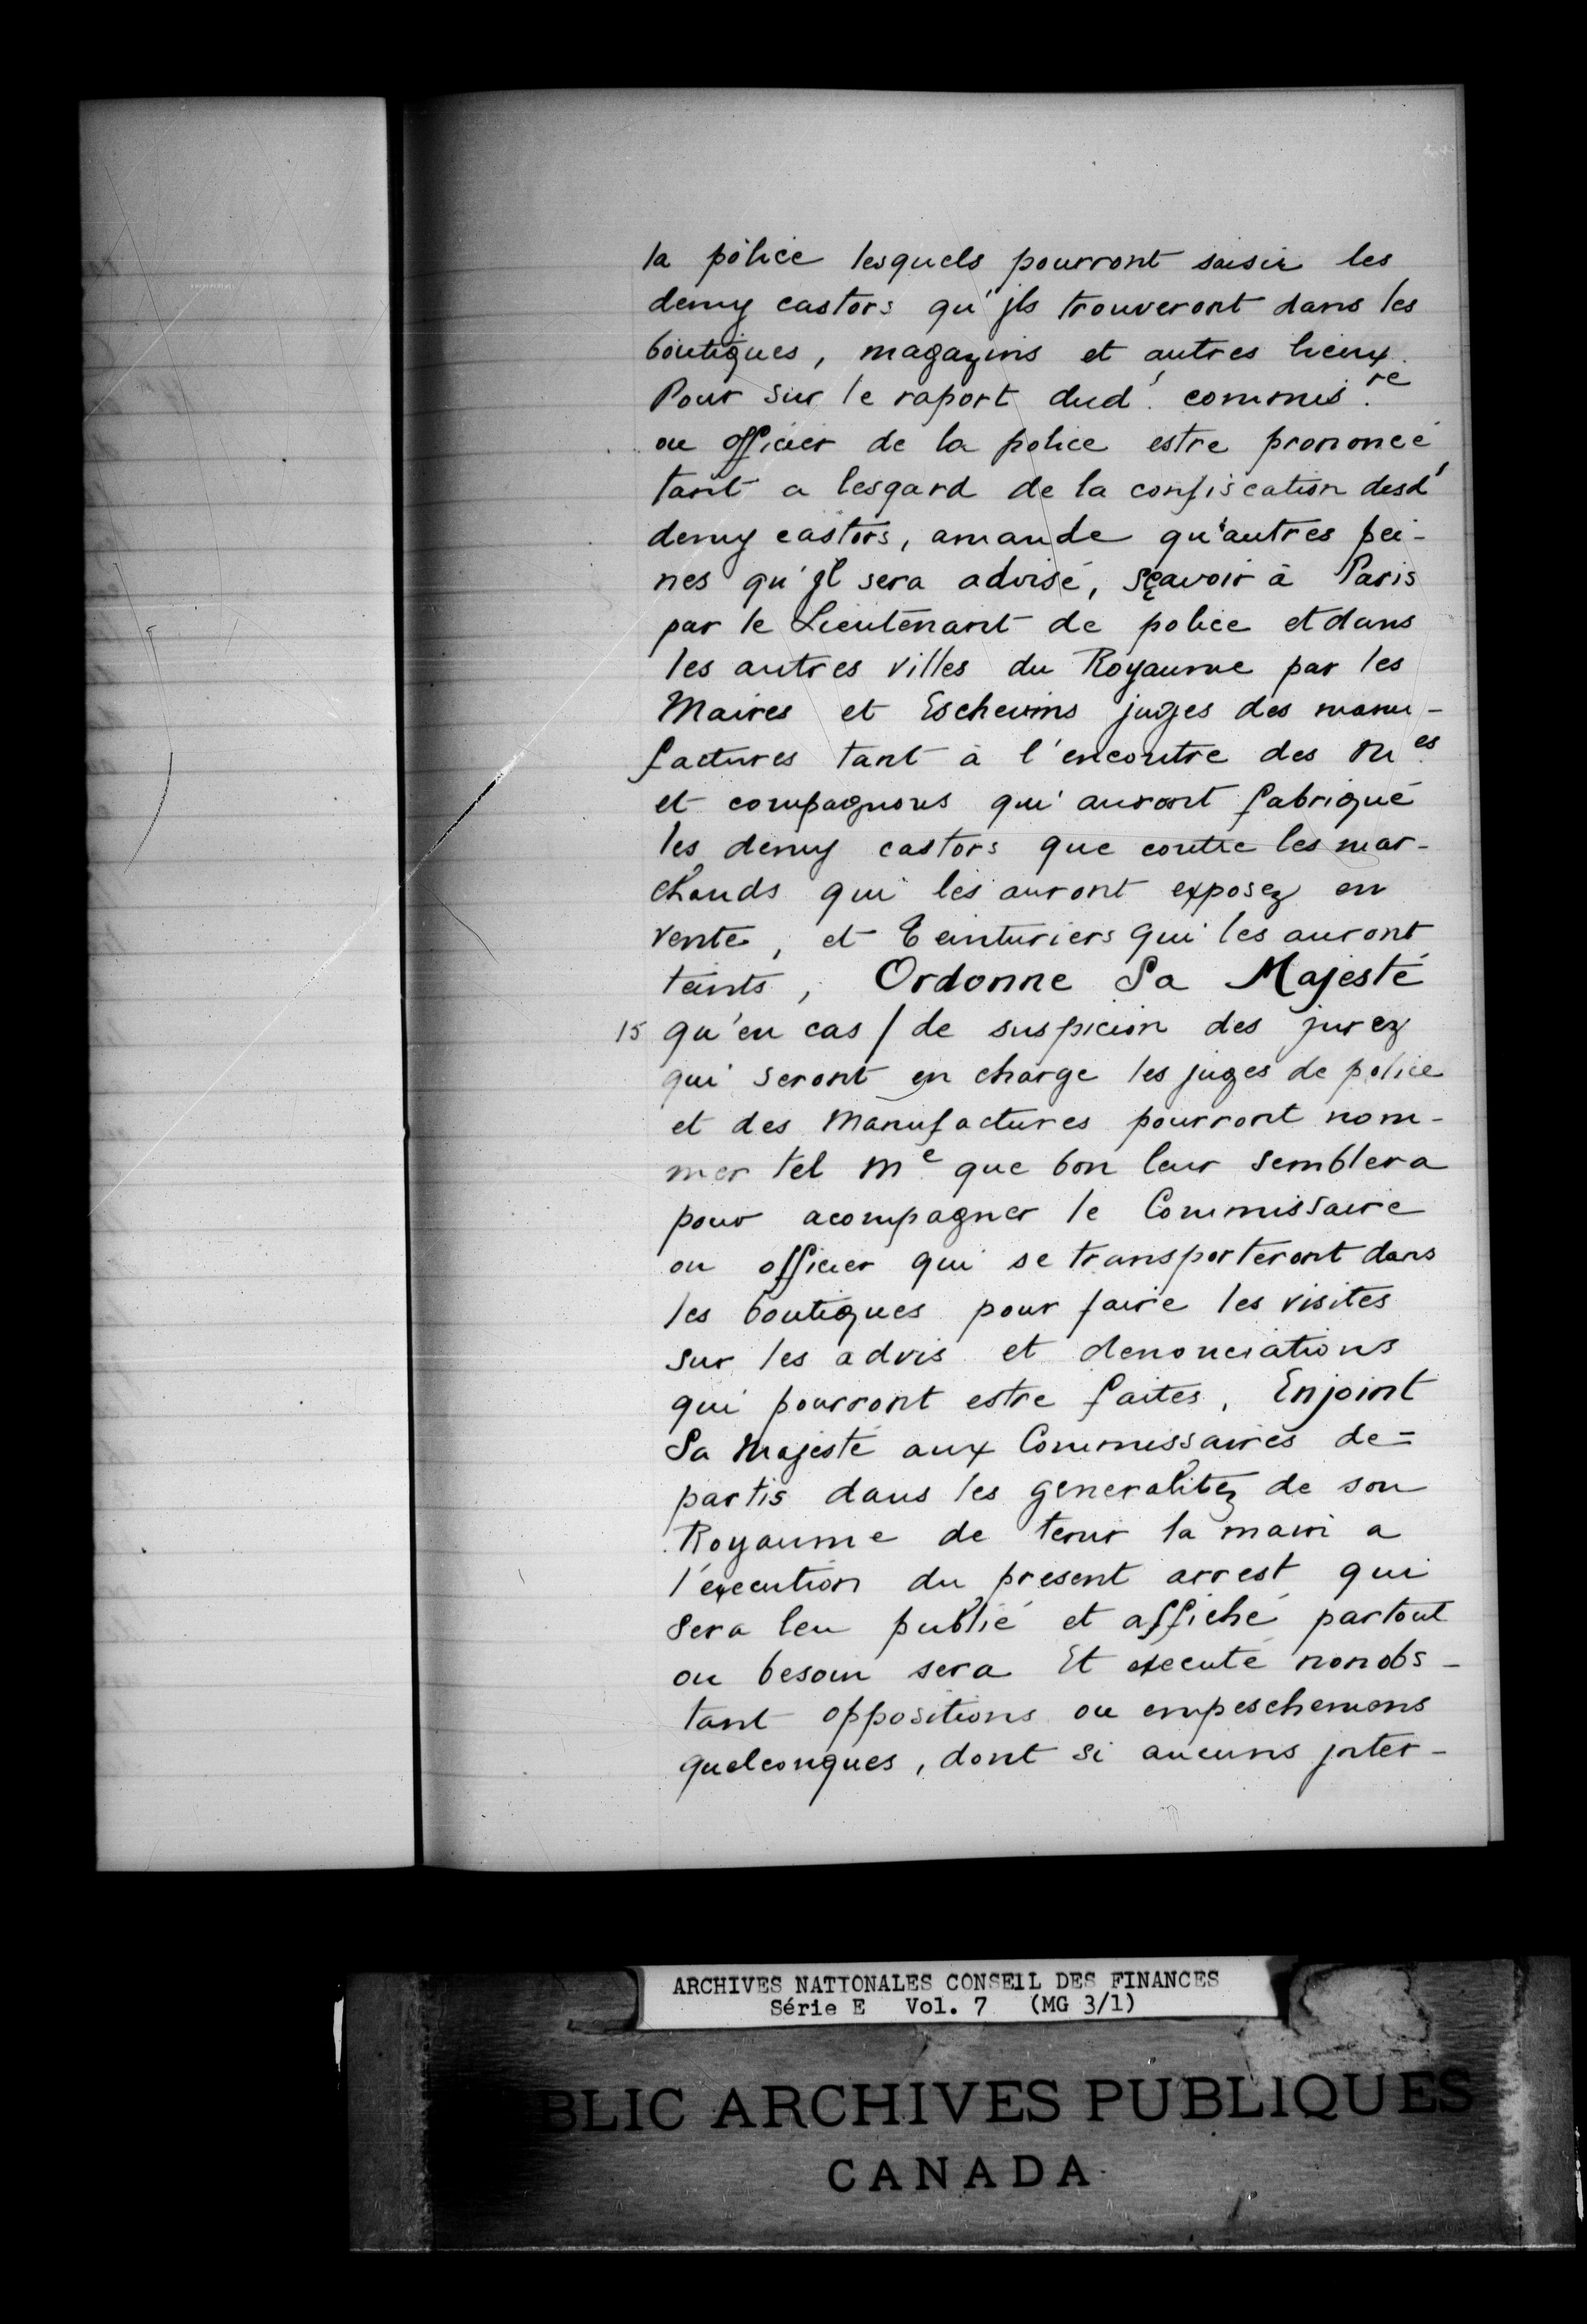 la police lesquels pourront saisir les
demy castors qu'jls trouveront dans les
boutiques, magazins et autres lieux.
Pour sur le raport dud'. commis.re
ou officier de la police estre prononcé
tant a lesgard de la confiscation desd'
demy castors, amande qu'autres pei-
nes qu'jl sera advisé, sçavoir à Paris
par le Lieutenant de police et dans
les autres villes du Royaume par les
Maires et Eschevins juges des manu-
factures tant à l'encontre des Mes
et compagnons qui auront fabriqué
les demy castors que contre les mar-
chands qui les auront exposez en
vente, et teinturiers qui les auront
teints, Ordonne Sa Majesté
15 qu'en cas / de suspicion des jurez
qui seront en charge les juges de police
et des Manufactures pourront nom-
mer tel Me que bon leur semblera
pour acompagner le Commissaire
ou officier qui se transporteront dans
les boutiques pour faire les visites
sur les advis et denonciations
qui pourront estre faites, Enjoint
Sa Majesté aux Commissaires de=
partis dans les generalitez de son
Royaume de tenir la main a
l'execution du present arrest qui
sera leu publié et affiché partout
ou besoin sera Et executé nonobs-
tant oppositions ou empeschemens
quelconques, dont si aucuns jnter-
ARCHIVES NATIONALES CONSEIL DES FINANCES
Série E Vol. 7 (MG 3/1)
BLIC ARCHIVES PUBLIQUES
CANADA